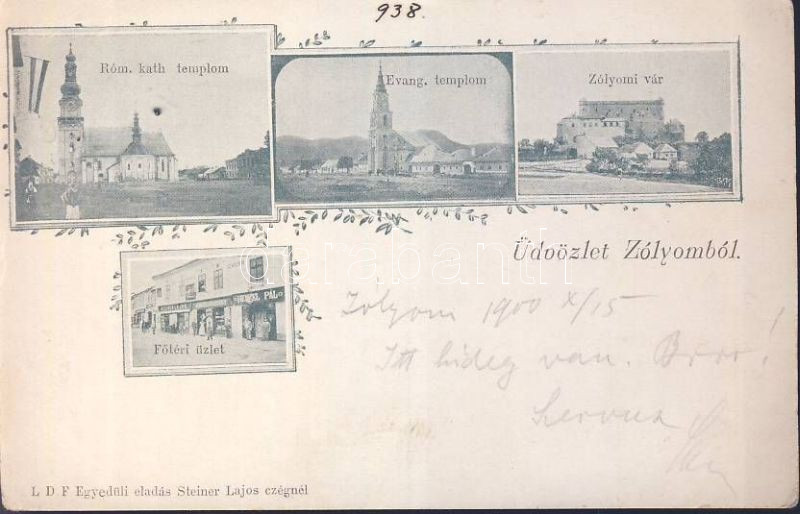 938.
Róm. kath templom
Evang. templom
Zólyomi vár
Üdvözlet Zólyomból.
PÁL
Főtéri üzlet
Zólyom 1900 X/15
Itt hideg van. Brrr!
Servus
L D F Egyedüli eladás Steiner Lajos czégnél